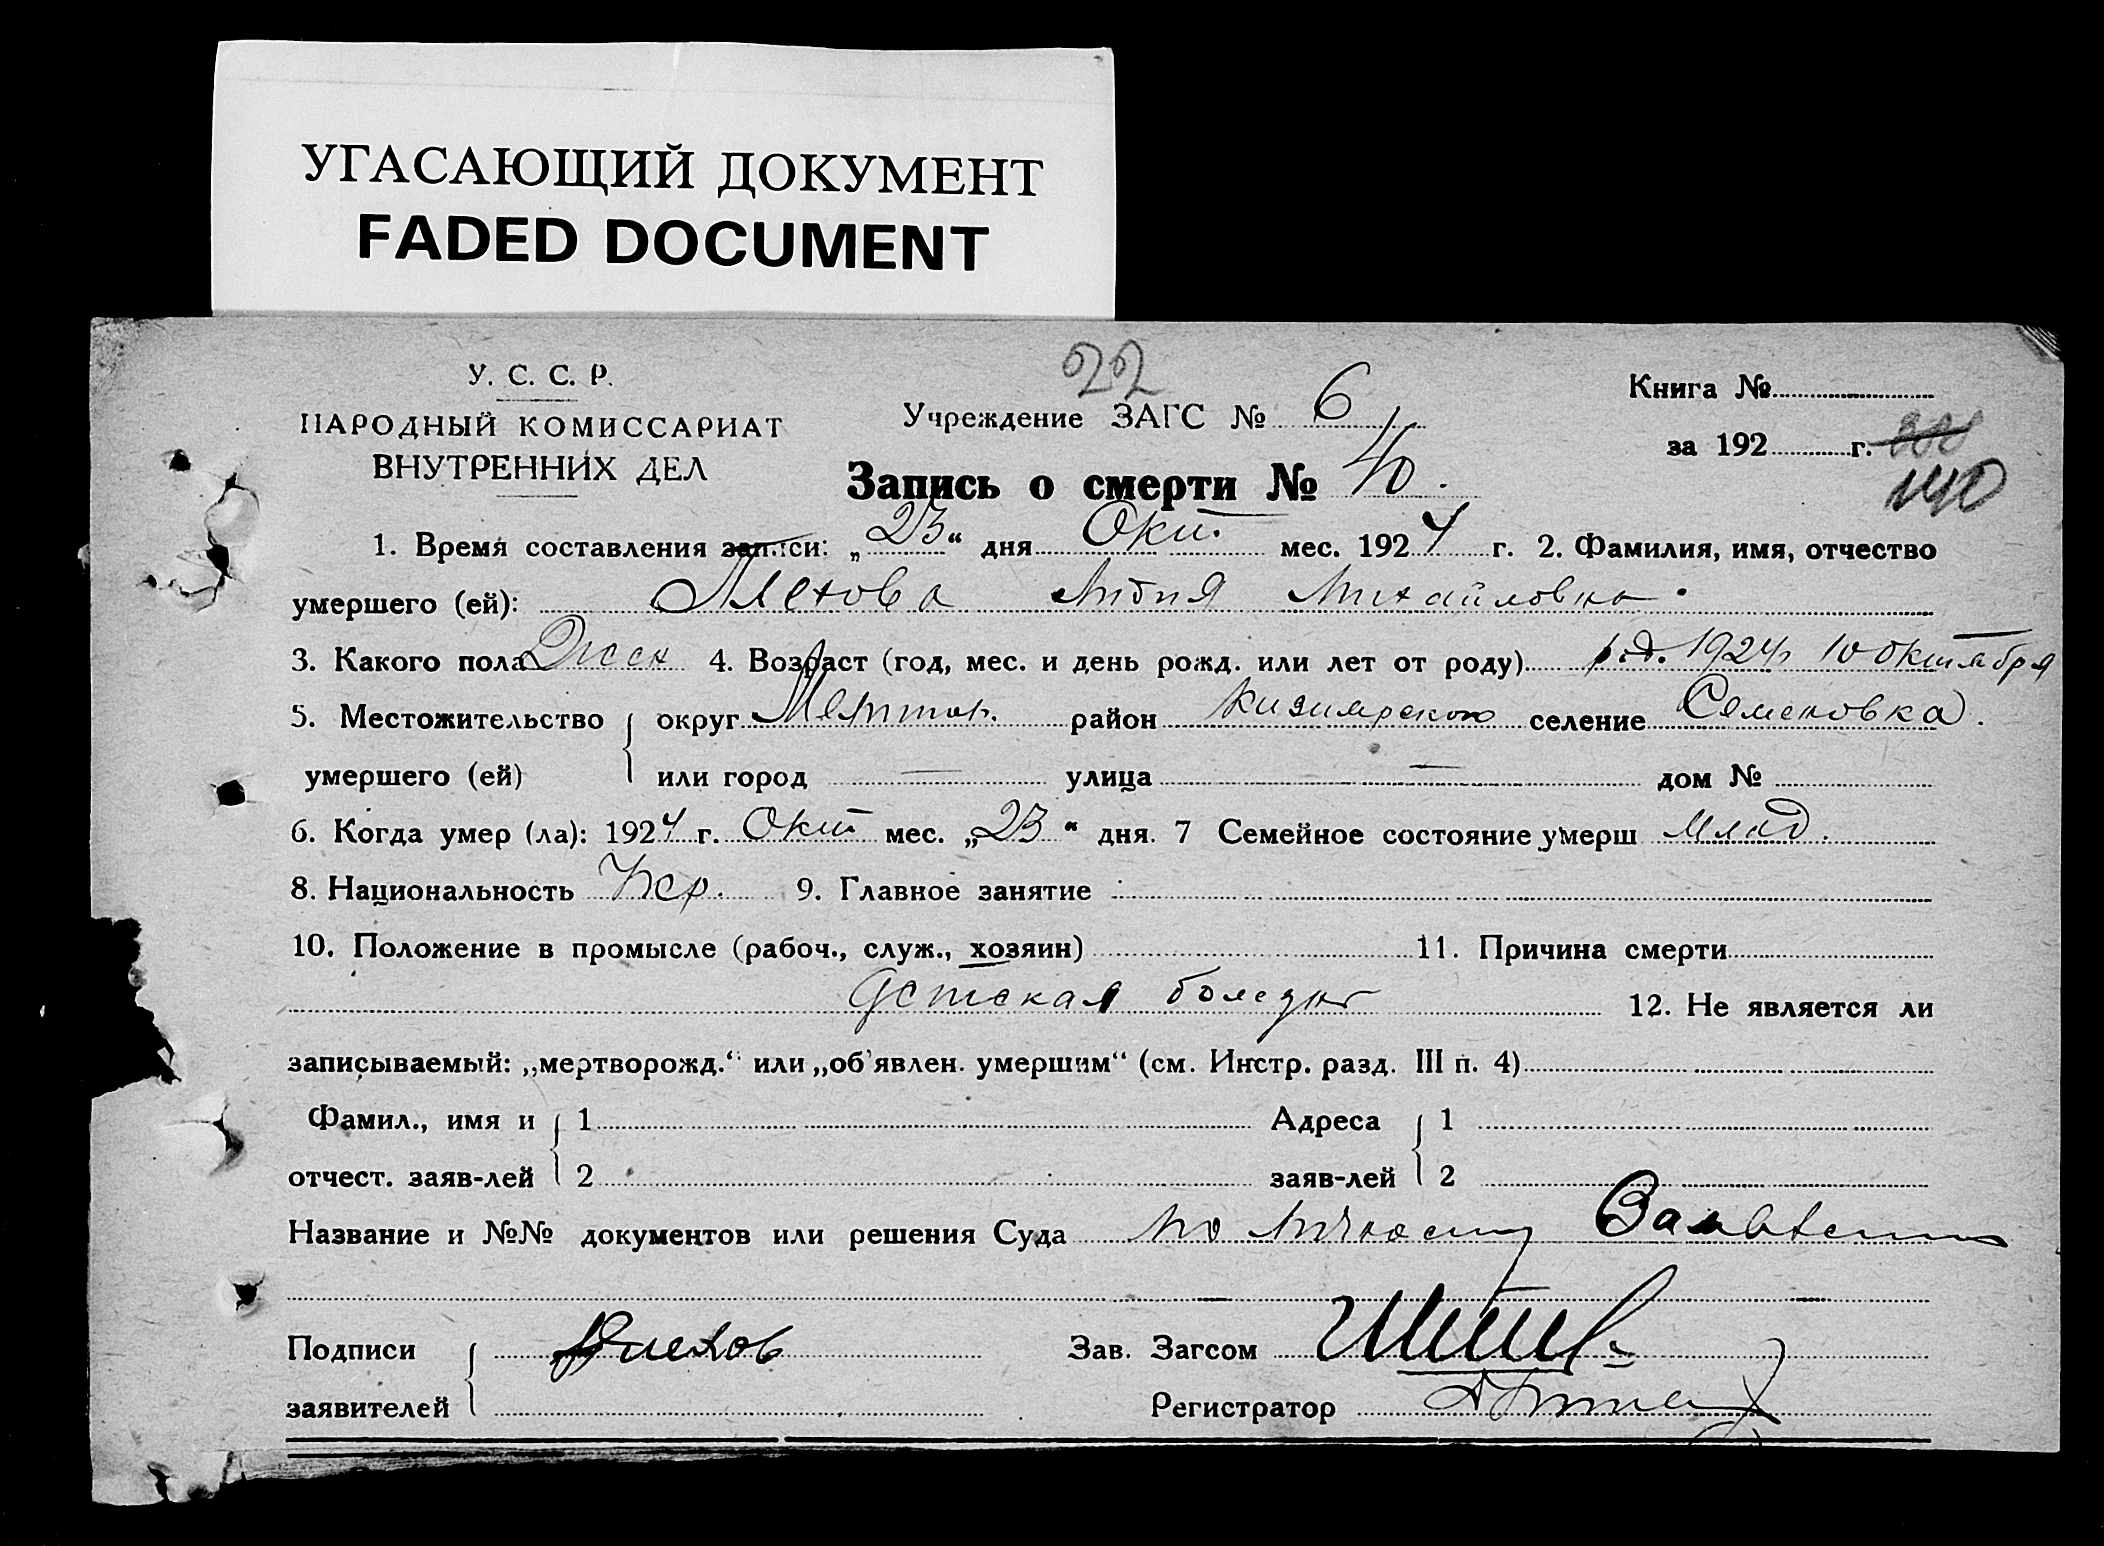 УГАСАЮЩИЙ ДОКУМЕНТ
FADED DOCUMENT
22
У. С. С. Р.
НАРОДНЫЙ КОМИССАРИАТ
ВНУТРЕННИХ ДЕЛ
Учреждение ЗАГС № 6
Запись о смерти № 40.
Книга №
за 192 г.
140
1. Время составления записи: „23“ дня Окт. мес. 1924 г. 2. Фамилия, имя, отчество
умершего (ей): Плехова Лидия Михайловна.
3. Какого пола Жен 4. Возраст (год, мес. и день рожд. или лет от роду) 1924 10 октября
5. Местожительство округ район селение Семеновка.
умершего (ей) или город — улица — дом №
6. Когда умер (ла): 1924 г. Окт мес. „23“ дня. 7 Семейное состояние умерш Млад.
8. Национальность Укр. 9. Главное занятие
10. Положение в промысле (рабоч., служ., хозяин) 11. Причина смерти
детская 12. Не является ли
записываемый: „мертворожд.“ или „об'явлен. умершим“ (см. Инстр. разд. III п. 4)
Фамил., имя и 1 Адреса 1
отчест. заяв-лей 2 заяв-лей 2
Название и №№ документов или решения Суда по личному
Подписи Плехов Зав. Загсом
заявителей Регистратор